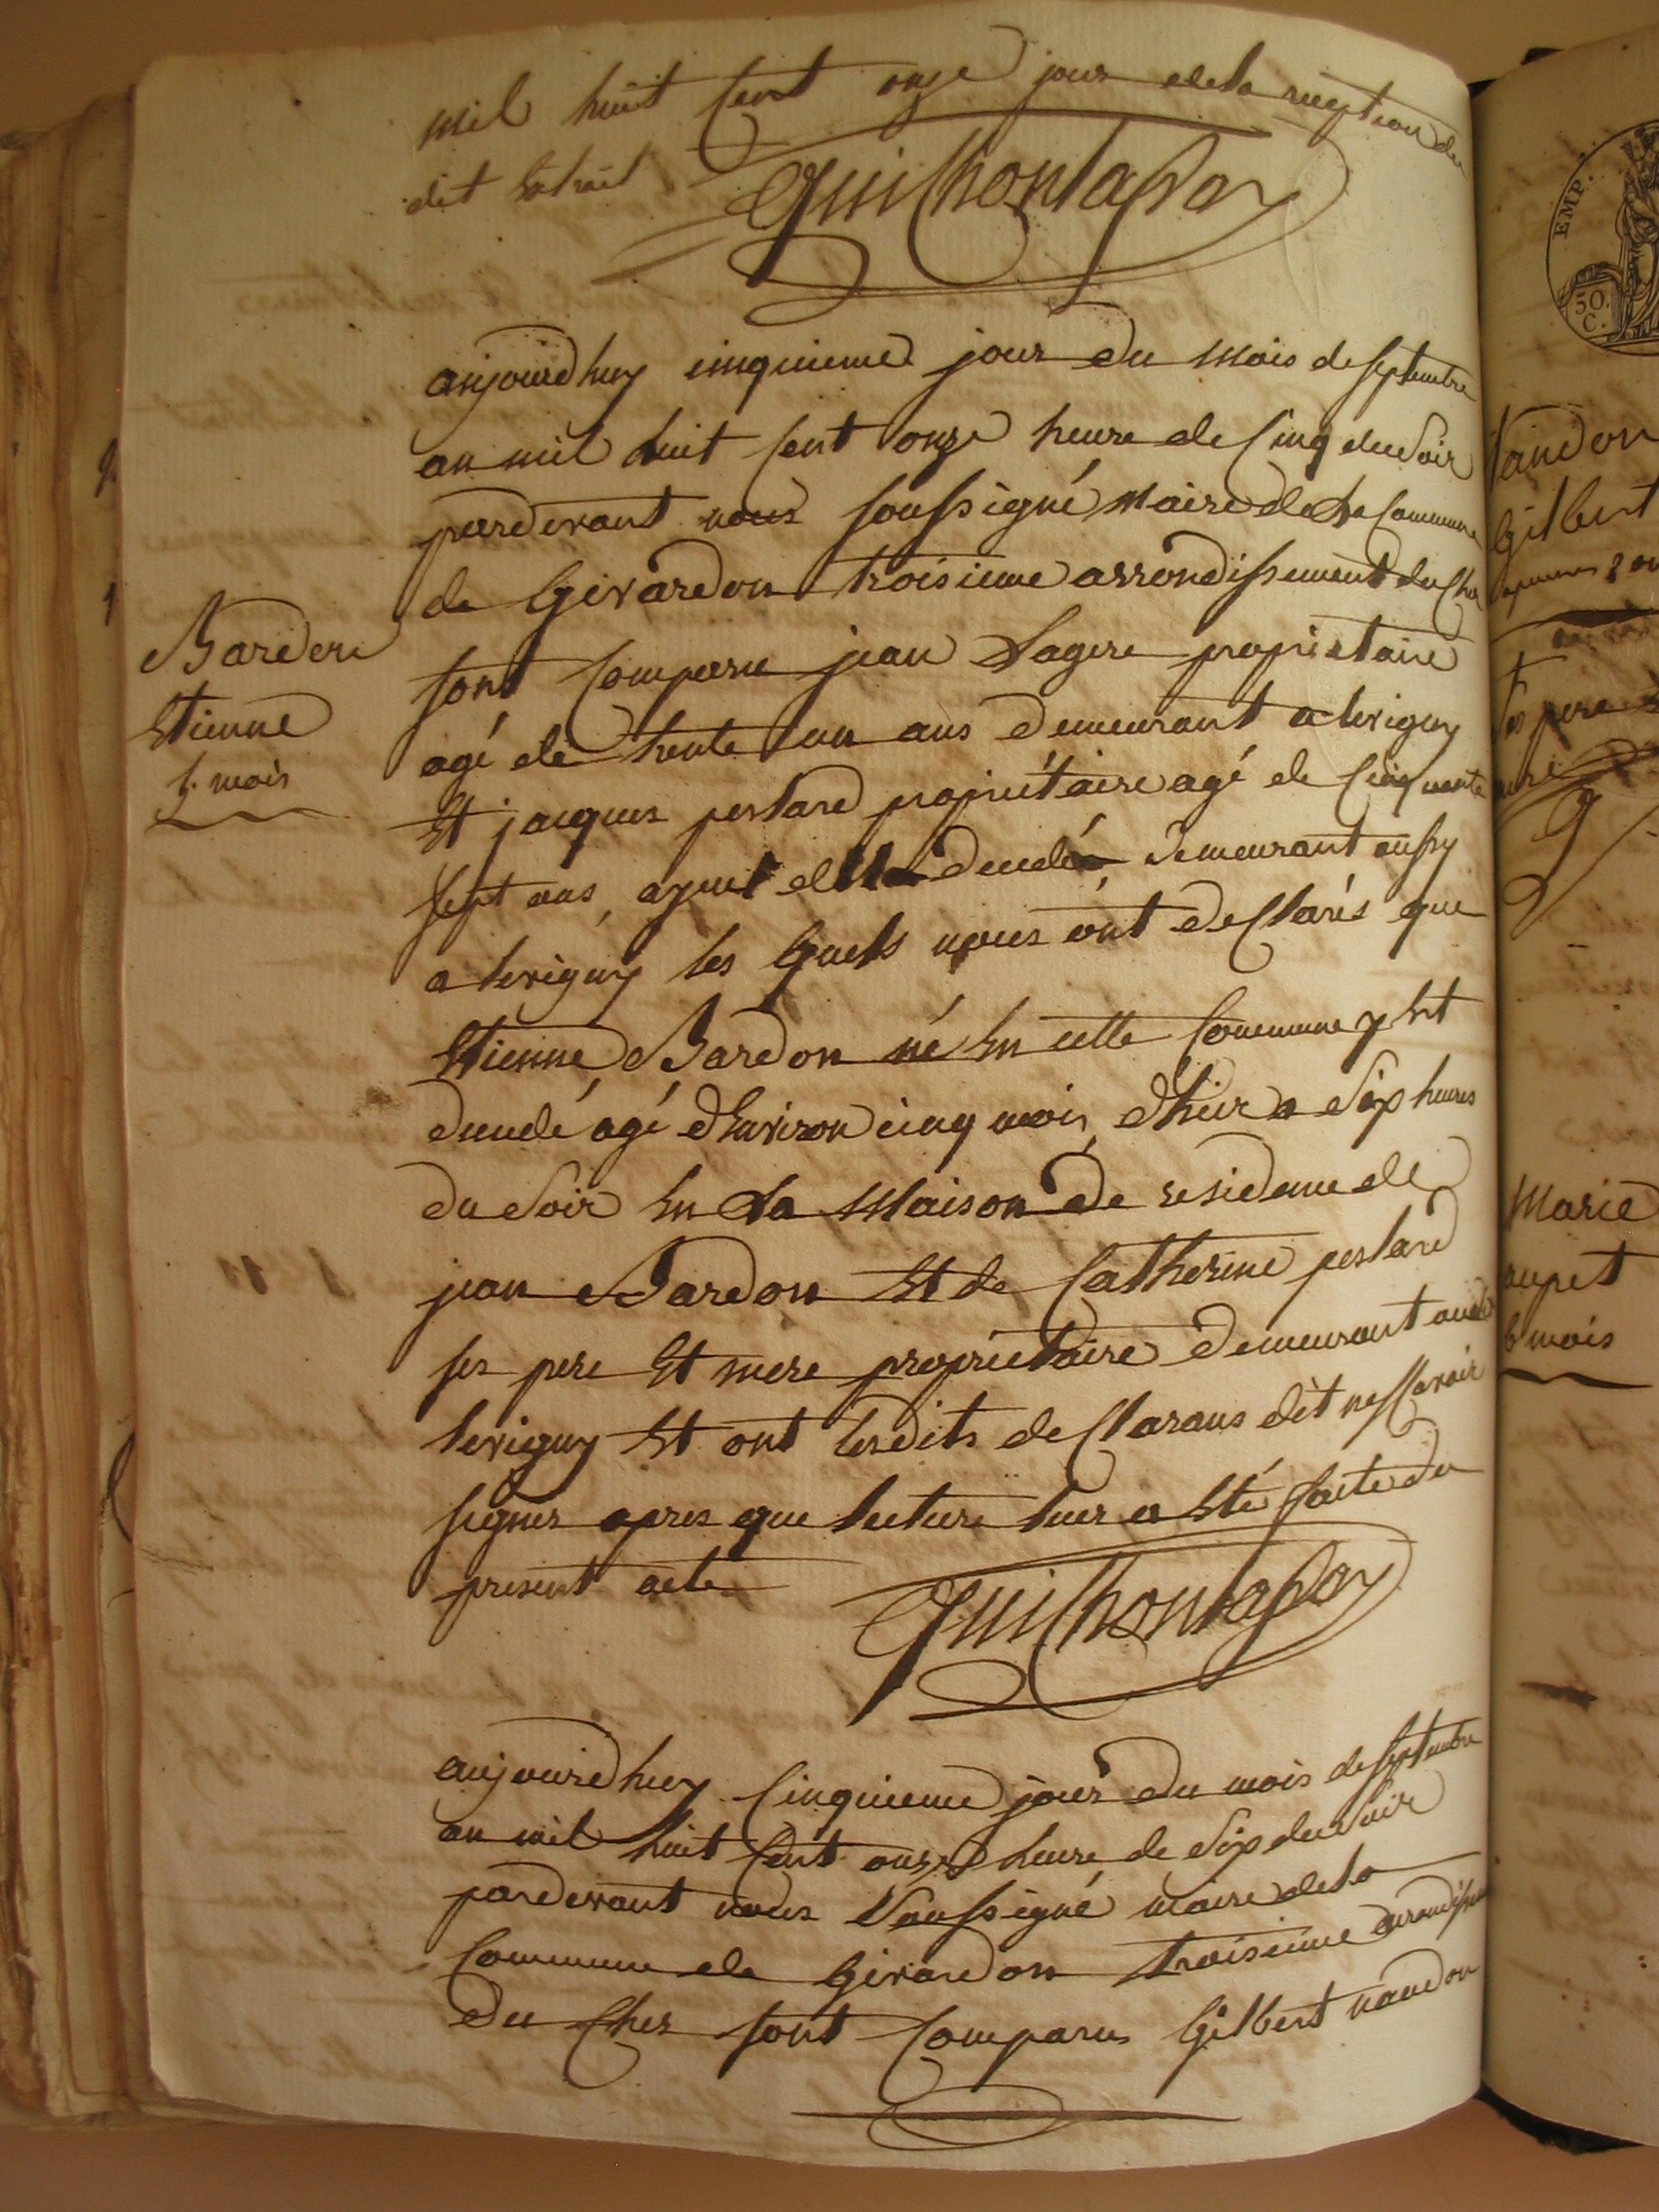 mil huit Cent onze jour de la reception du
dit Extrait
Guilhontapay
aujourdhuy cinquieme jour du mois de septembre
an mil huit Cent onze heure de Cinq du Soir
pardevant nous soussigné Maire de la Commune
de Givardon troisieme arrondissement du Cher
sont Comparu jean Sagere proprietaire
agé de trente un ans demeurant a terigny
Et jacques pestard propriétaire agé de Cinquante
sept ans, ayeul du decedé demeurant aussy
a terigny les quels nous ont desClarés que
Etienne Bardon né En cette Commune y Est
decedé agé d'Environ cinq mois, d'hier a Six heures
du Soir En la Maison de residence de
jean Bardon Et de Catherine pestard
ses pere Et mere proprietaire demeurant audit
terigny Et ont lesdits desClarans dit ne sCavoir
signer apres que lecture leur a Eté faite du
present acte
Guilhontapay
Bardon
Etienne
5. mois
aujourdhuy Cinquieme jour du mois de septembre
an mil huit Cent onze heure de Six du Soir
pardevant nous Soussigné maire de la
Commune de Givardon troisieme
du Cher sont Comparus Gilbert naudon
EMP.
50.
C.
Gilbert
pere
Marie
aupet
6 mois